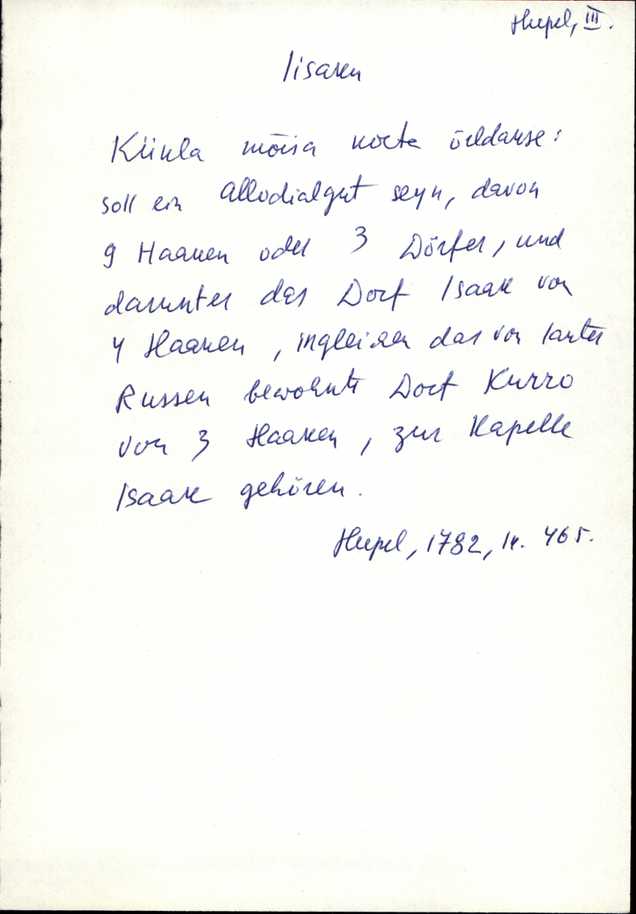 Hupel, III.
Iisaku
Kiikla mõisa kohta öeldakse:
soll ein Allodialgut seyn, davon
9 Haaken oder 3 Dörfer, und
darunter das Dorf Isaak von
4 Haaken, ingleichen das von lauter
Russen bewohnte Dorf Kurro
von 3 Haaken, zur Kapelle
Isaak gehören.
Hupel, 1782, lk. 465.